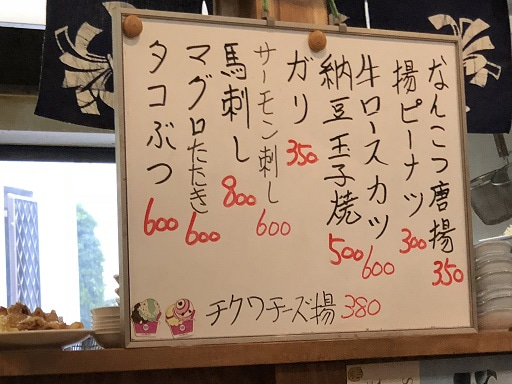 なんこつ唐揚 350
揚ピーナツ 300
牛ロースカツ 600
納豆玉子焼 500
ガリ 350
サーモン刺し 600
馬刺し 800
マグロたたき 600
タコぶつ 600
チクワチーズ揚 380